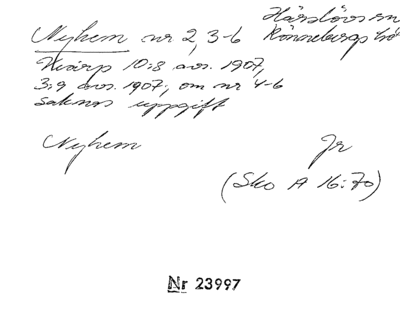 Härslövs sn
Nyhem nr 2, 3-6 Rönnebergs hd
Kvärp 10:8 avs. 1907,
3:9 avs. 1907, om nr 4-6
saknas uppgift
Nyhem Jr
(Sko A 16:70)
Nr 23997